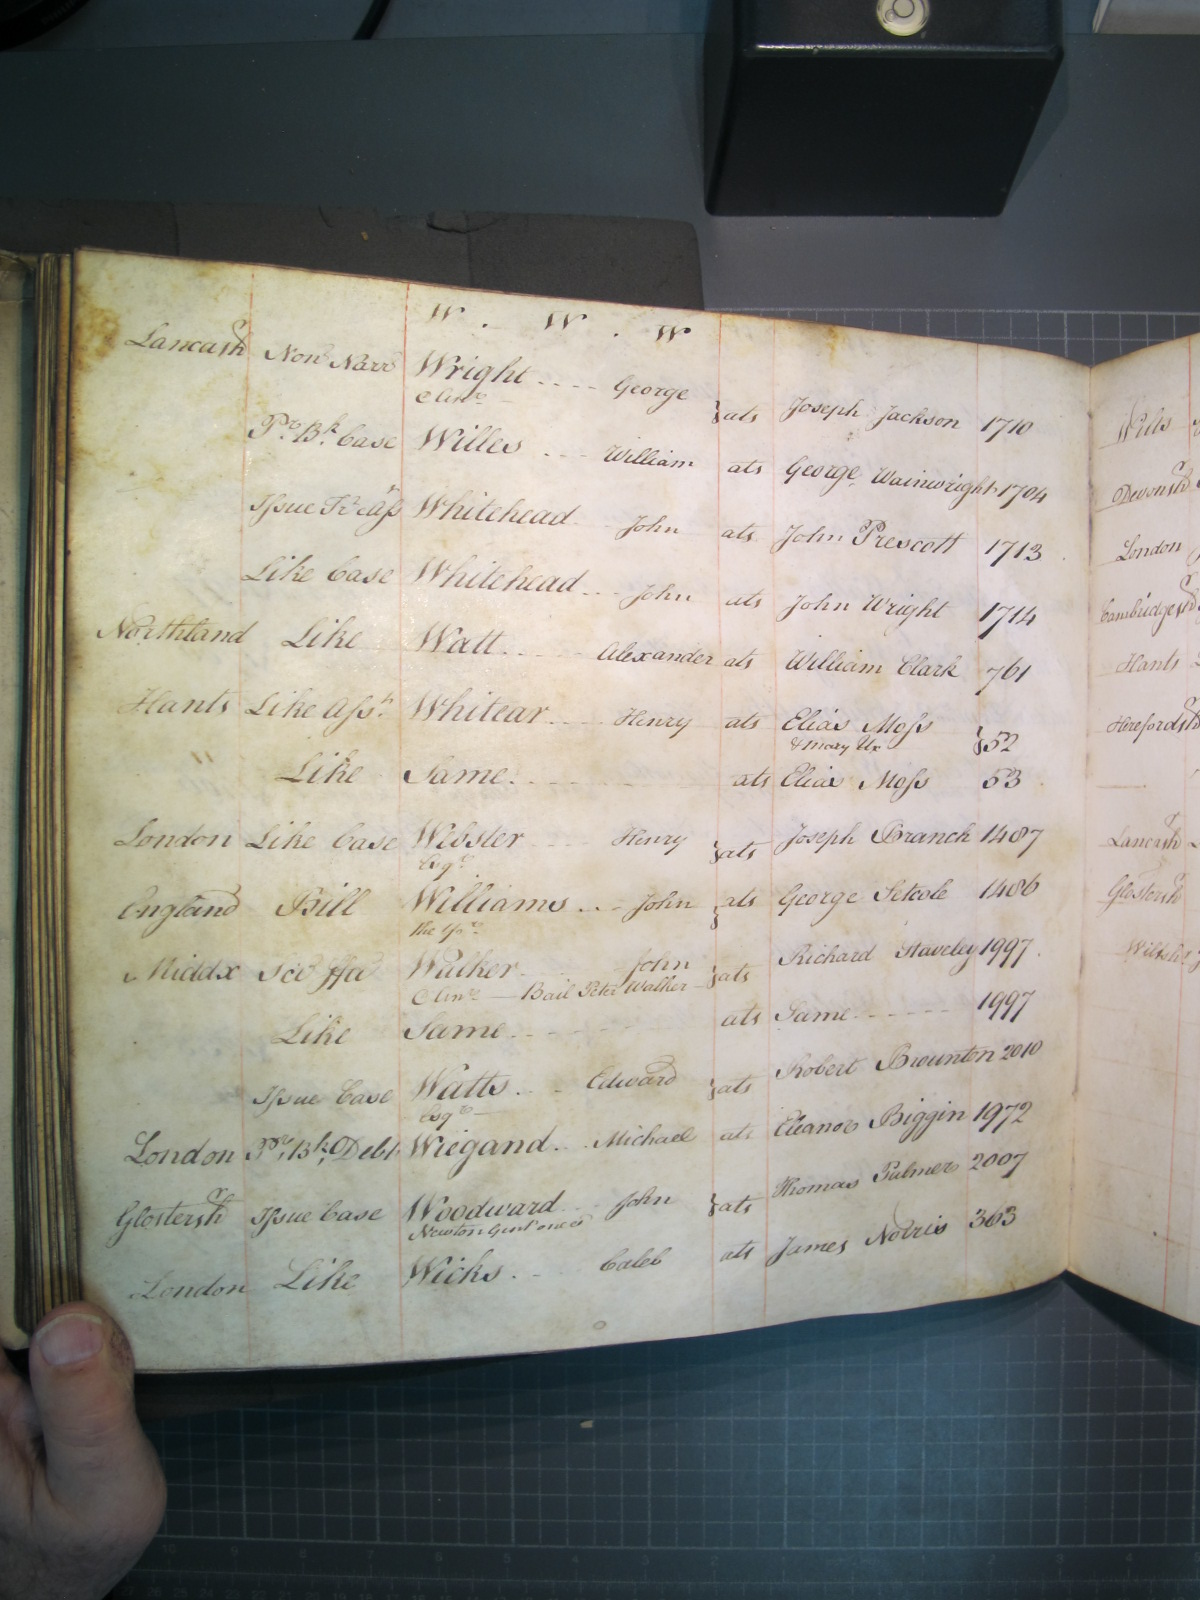 W . W . W
Lancash Non Narr Wright .... George } ats Joseph Jackson 1710
Clire
Pr. Bk. Case Willes ... William ats George Wainwright 1704
Issue Whitehead John ats John Prescott 1713
Like Case Whitehead ... John ats John Wright 1714
Northland Like Watt ..... Alexander ats William Clark 761
Hants Like Asst. Whitear .... Henry ats Elias Moss } 52
& Mary Ux
" Like Same ........ ats Elias Moss 53
London Like Case Webster .... Henry } ats Joseph Branch 1487
Esqr.
England Bill Williams ... John } ats George Setcole 1486
the Yor.
Middx Sci ffa Walker .... John } ats Richard Staveley 1997
Clire — Bail Peter Walker
Like Same ........ ats Same ...... 1997
Issue Case Watts ... Edward } ats Robert Brounton 2010
Esqr —
London Pr. Bk. Debt Wiegand ... Michael ats Eleanor Biggin 1972
Glostersh Issue Case Woodward ... John } ats Thomas Palmer 2007
Newton Gent one &
London Like Wicks ... Caleb ats James Norris 363
Wilts
Devonsh
London
Cambridgesh
Hants
Herefordsh
Lancash
Glostersh
Wiltsh